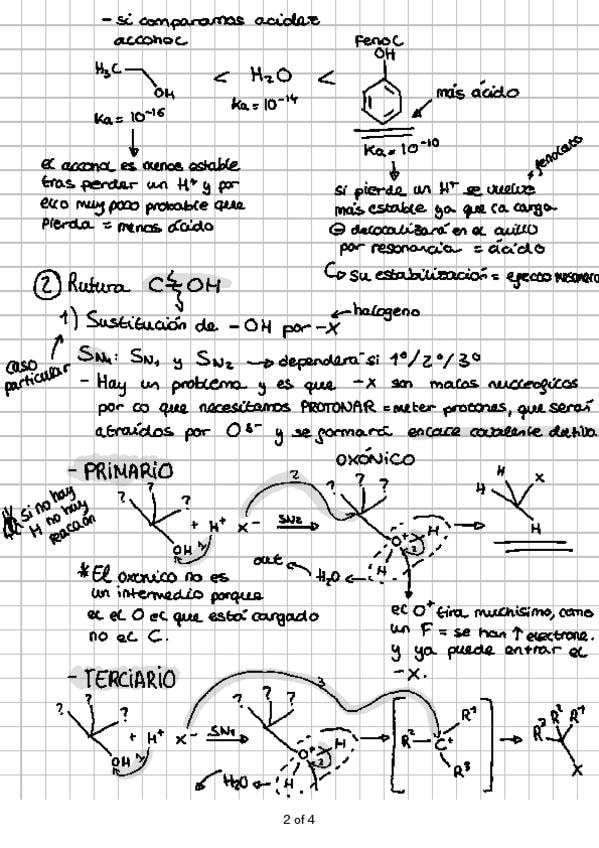 - si comparamos acidez
alcohol
Fenol
H₃C
OH
<
H₂O
<
OH
Ka = 10⁻¹⁶
Ka = 10⁻¹⁴
Ka = 10⁻¹⁰
más ácido
el alcohol es menos estable
tras perder un H⁺ y por
ello muy poco probable que
pierda = menos ácido
fenolato
si pierde un H⁺ se vuelve
más estable ya que la carga
⊖ decolalizará en el anillo
por resonancia = ácido
↳ su estabilización = efecto mesomero
② Rutura C OH
1) Sustitución de -OH por -X ← halogeno
caso
particular
SN: SN₁ y SN₂ → dependerá si 1º/2º/3º
- Hay un problema y es que -X son malos nucleofilos
por lo que necesitamos PROTONAR = meter protones, que serán
atraídos por O δ- y se formará enlace covalente dativo
- PRIMARIO
OXÓNICO
Si no hay
H no hay
reacción
? ? ?
OH
1
+ H⁺ X⁻
SN2
2
? ? ?
O⁺ H
H
2
out ← H₂O
H H X
H
* El oxonico no es
un intermedio porque
el el O el que está cargado
no el C.
el O⁺ tira muchísimo, como
un F = se han ↑ electrone.
y ya puede entrar el
-X.
- TERCIARIO
? ? ?
OH
1
+ H⁺ X⁻
SN1
3
? ? ?
O⁺ H
H
2
H₂O
R² C⁺ R¹
R³
R³ R² R¹
X
2 of 4